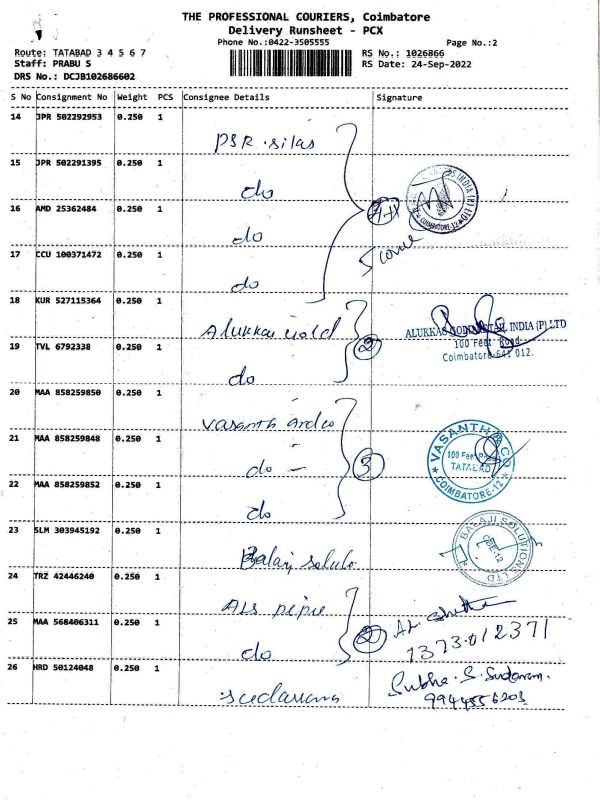 THE PROFESSIONAL COURIERS, Coimbatore
Delivery Runsheet - PCX
Phone No.:0422-3505555
Page No.:2
Route: TATABAD 3 4 5 6 7
RS No.: 1026866
Staff: PRABU S
RS Date: 24-Sep-2022
DRS No.: DCJB102686602
S No Consignment No Weight PCS Consignee Details Signature
14 JPR 502292953 0.250 1
PSR silas
15 JPR 502291395 0.250 1
do
16 AMD 25362484 0.250 1
do
17 CCU 100371472 0.250 1
do
18 KUR 527115364 0.250 1
Alukkas Gold
ALUKKAS INDIA (P) LTD
100 Feet Road
Coimbatore-641 012.
19 TVL 6792338 0.250 1
do
2
20 MAA 858259850 0.250 1
Vasanth and co
21 MAA 858259848 0.250 1
do -
3
VASANTH & CO
100 Feet Road
TATABAD
COIMBATORE-12
22 MAA 858259852 0.250 1
do
23 SLM 303945192 0.250 1
Balaji solutio
BALAJI SOLUTIONS LTD
CBE-12
24 TRZ 42446240 0.250 1
ALS pipe
25 MAA 568406311 0.250 1
do
2
7373012371
26 HRD 50124048 0.250 1
sudarsana
Subha.S.Sudaram.
9944556203